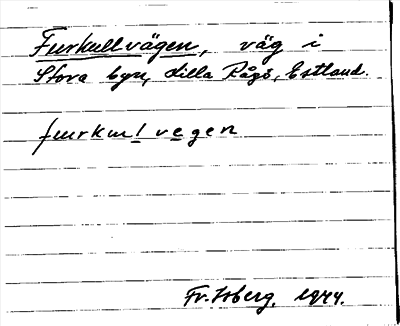 Furkullvägen, väg i
Stora byn, Lilla Rågö, Estland.
furkul vegen
Fr. Isberg, 1944.